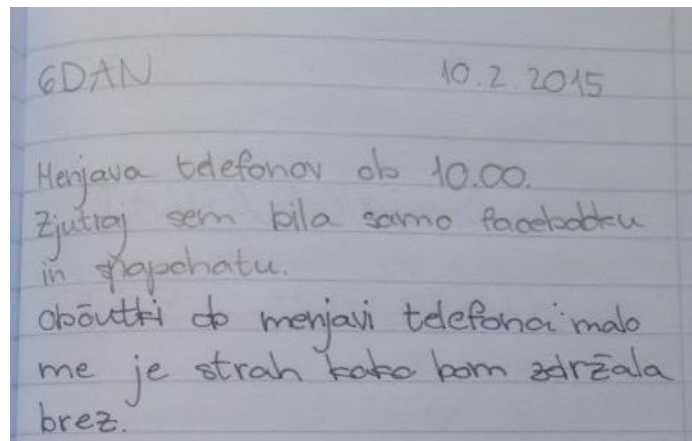 6DAN 10.2 2015
Menjava telefonov ob 10.00.
Zjutraj sem bila samo facebooku
in snapchatu.
občutki ob menjavi telefona: malo
me je strah kako bom zdržala
brez.